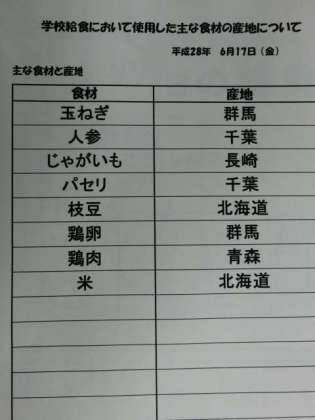 学校給食において使用した主な食材の産地について
平成28年 6月17日（金）
主な食材と産地
食材 産地
玉ねぎ 群馬
人参 千葉
じゃがいも 長崎
パセリ 千葉
枝豆 北海道
鶏卵 群馬
鶏肉 青森
米 北海道